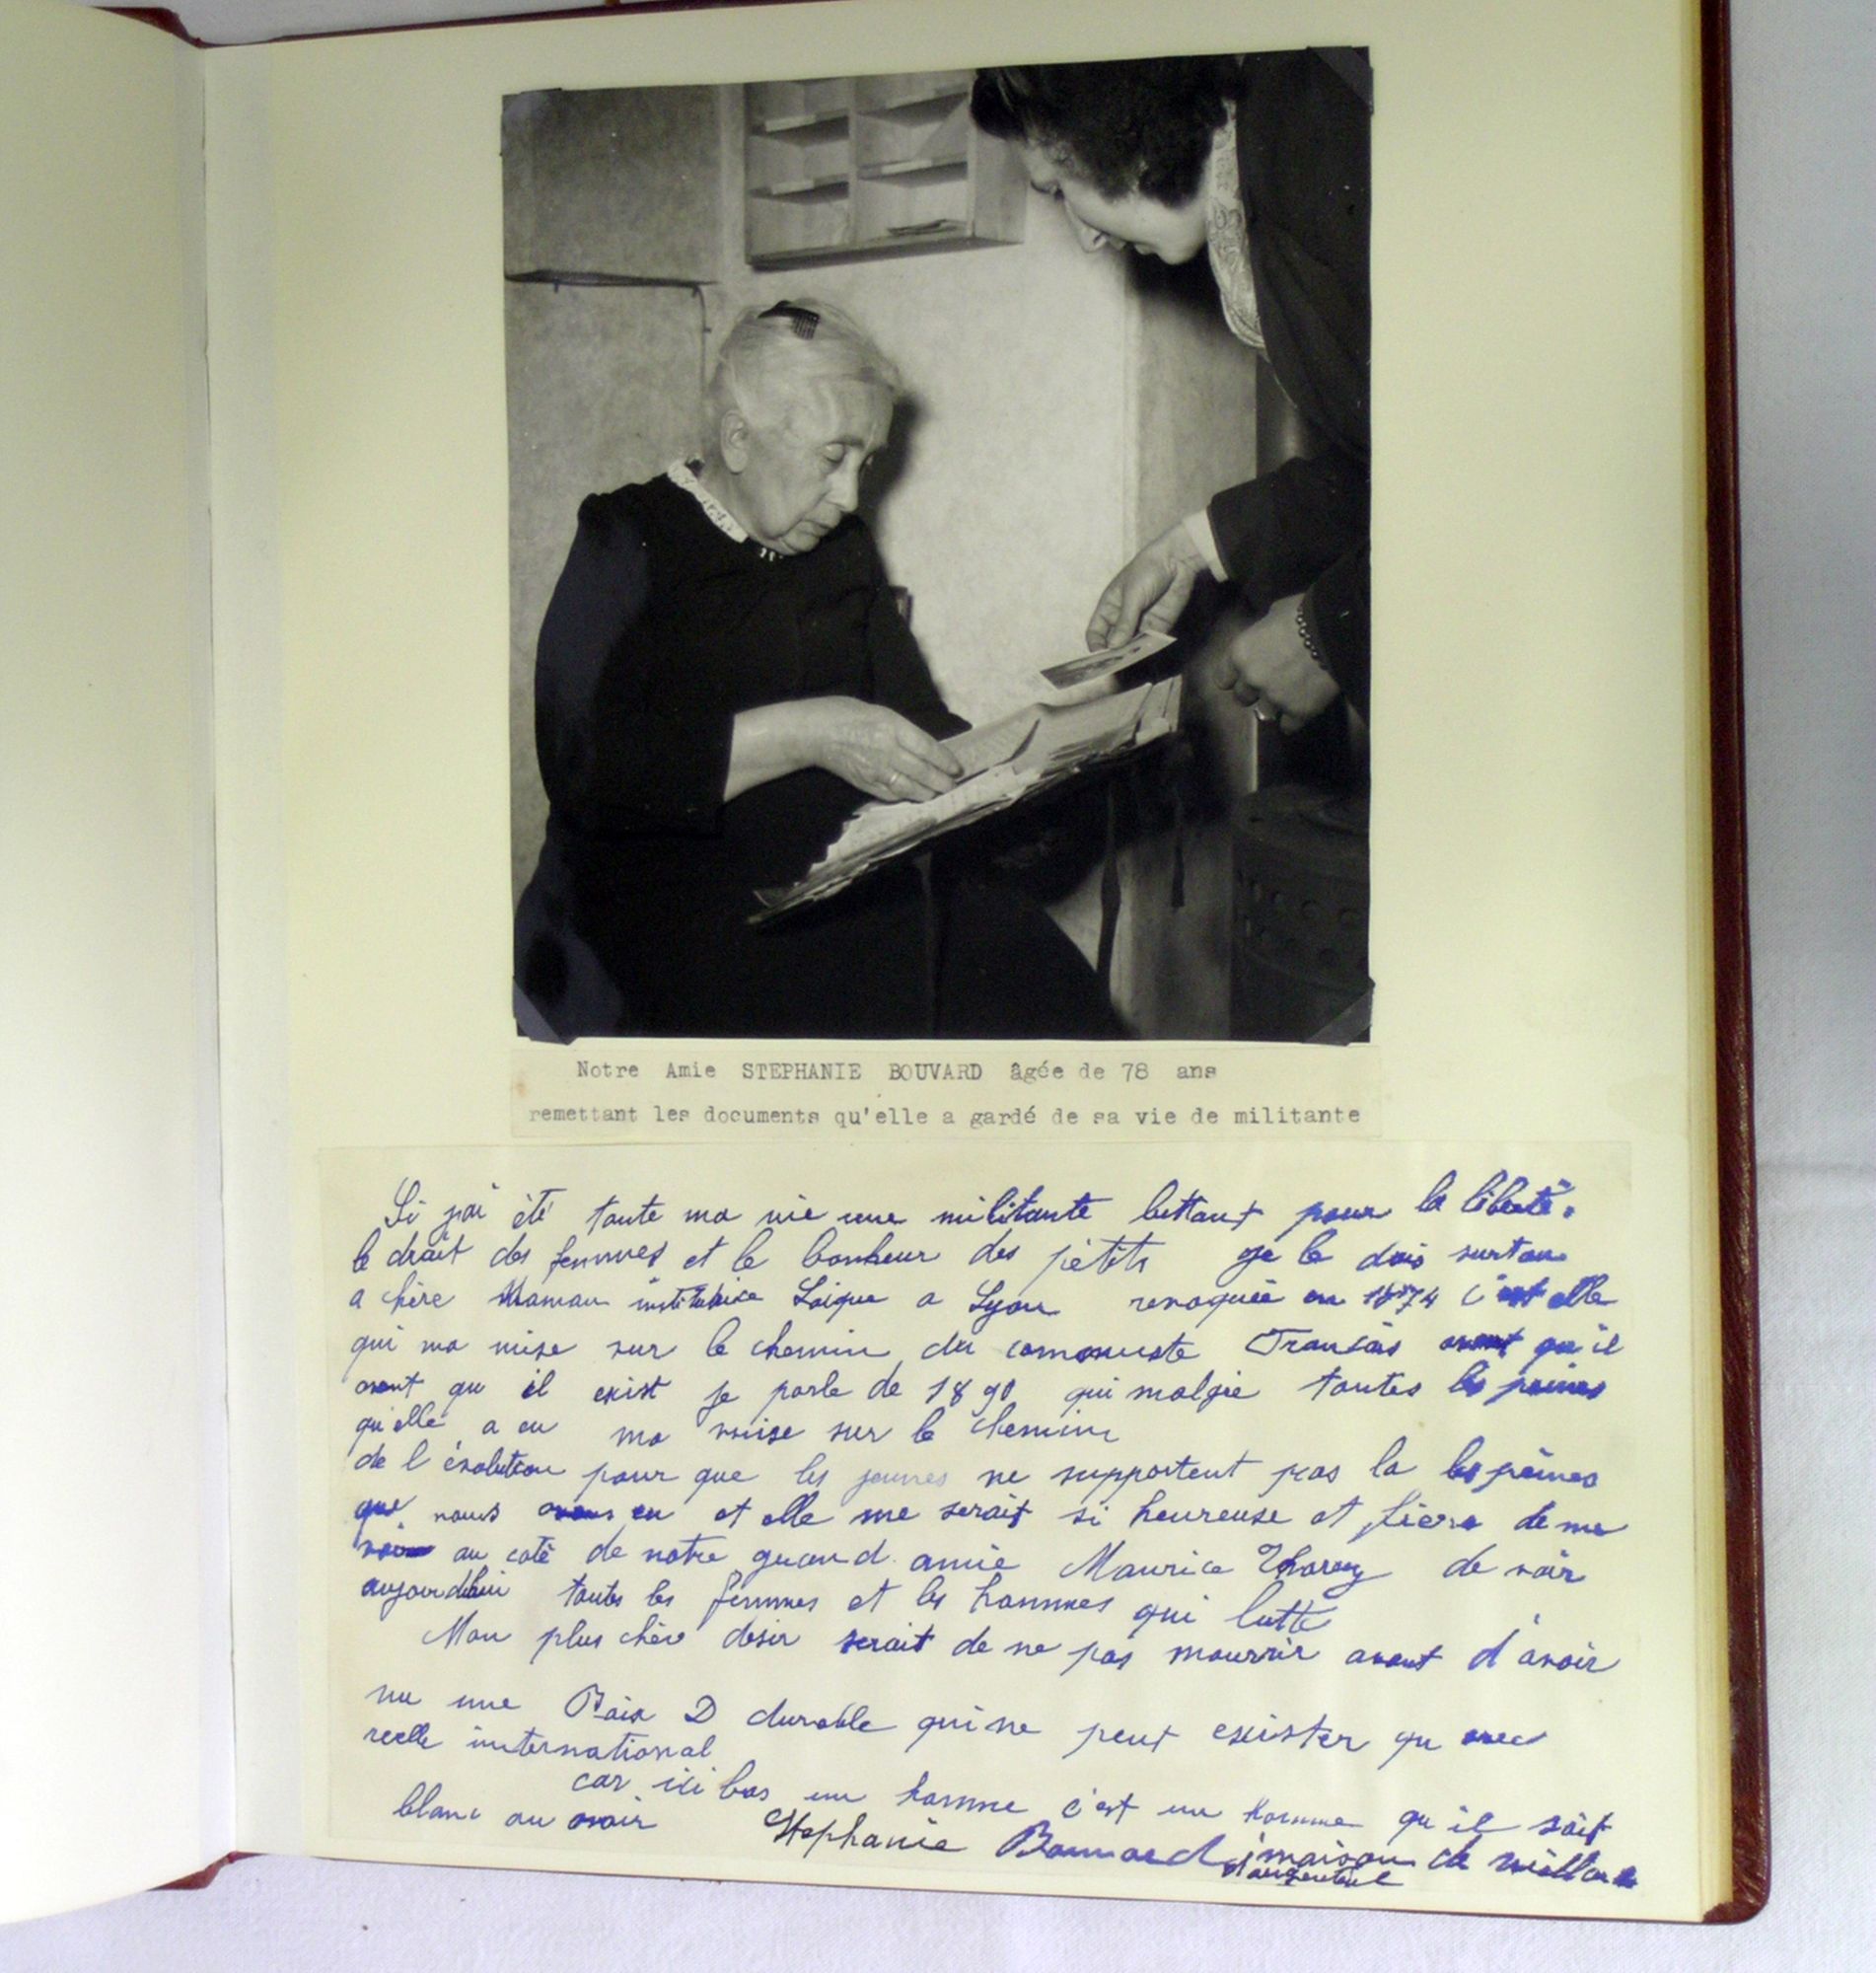 Notre Amie STEPHANIE BOUVARD âgée de 78 ans
remettant les documents qu'elle a gardé de sa vie de militante
Si jai été toute ma vie une militante luttant pour la liberté.
le droit des femmes et le bonheur des petits je le dois surtou
a chère Maman institutrice Laique a Lyon revoquée en 1874 c'est elle
qui ma mise sur le chemin du communiste Francais avant qu'il
avant qu il exist je parle de 1890 qui malgré toutes les peines
qu'elle a eu ma mise sur le chemin
de l évolution pour que les jeunes ne supportent pas la les peines
que nous avons eu et elle me serait si heureuse et fière de me
voir au coté de notre grand amie Maurice Thorez de voir
aujourdhui toutes les femmes et les hommes qui lutte
Mon plus chère desir serait de ne pas mourrir avant d'avoir
vu une Paix D durable qui ne peut exister qu avec
reelle international
car ici bas un homme c'est un homme qu'il soit
blanc ou noir Stephanie Bouvard maison de
d'argenteuil